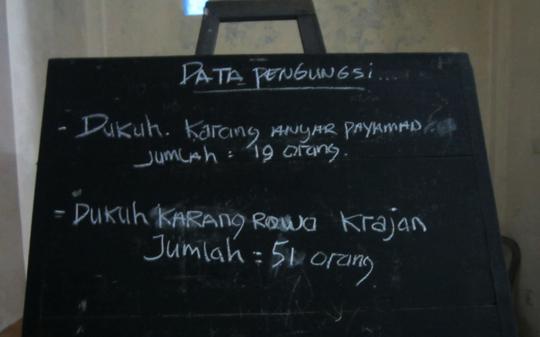 DATA PENGUNGSI...
- Dukuh. Karang ANYAR PAYAMAN
Jumlah = 19 orang.
= DUKUH KARANG ROWO Krajan
Jumlah = 51 orang